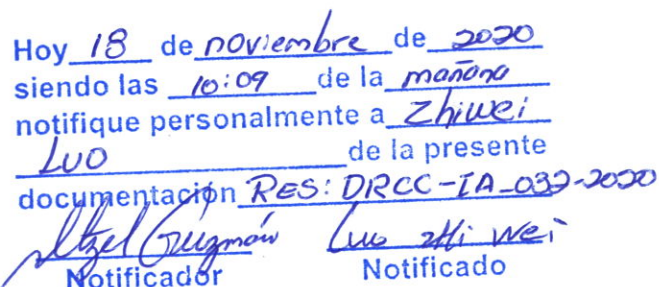 Hoy 18 de noviembre de 2020
siendo las 10:09 de la mañana
notifique personalmente a Zhiwei
Luo de la presente
documentación RES: DRCC-IA-032-2020
Itzel Guzmán Luo Zhi Wei
Notificador Notificado